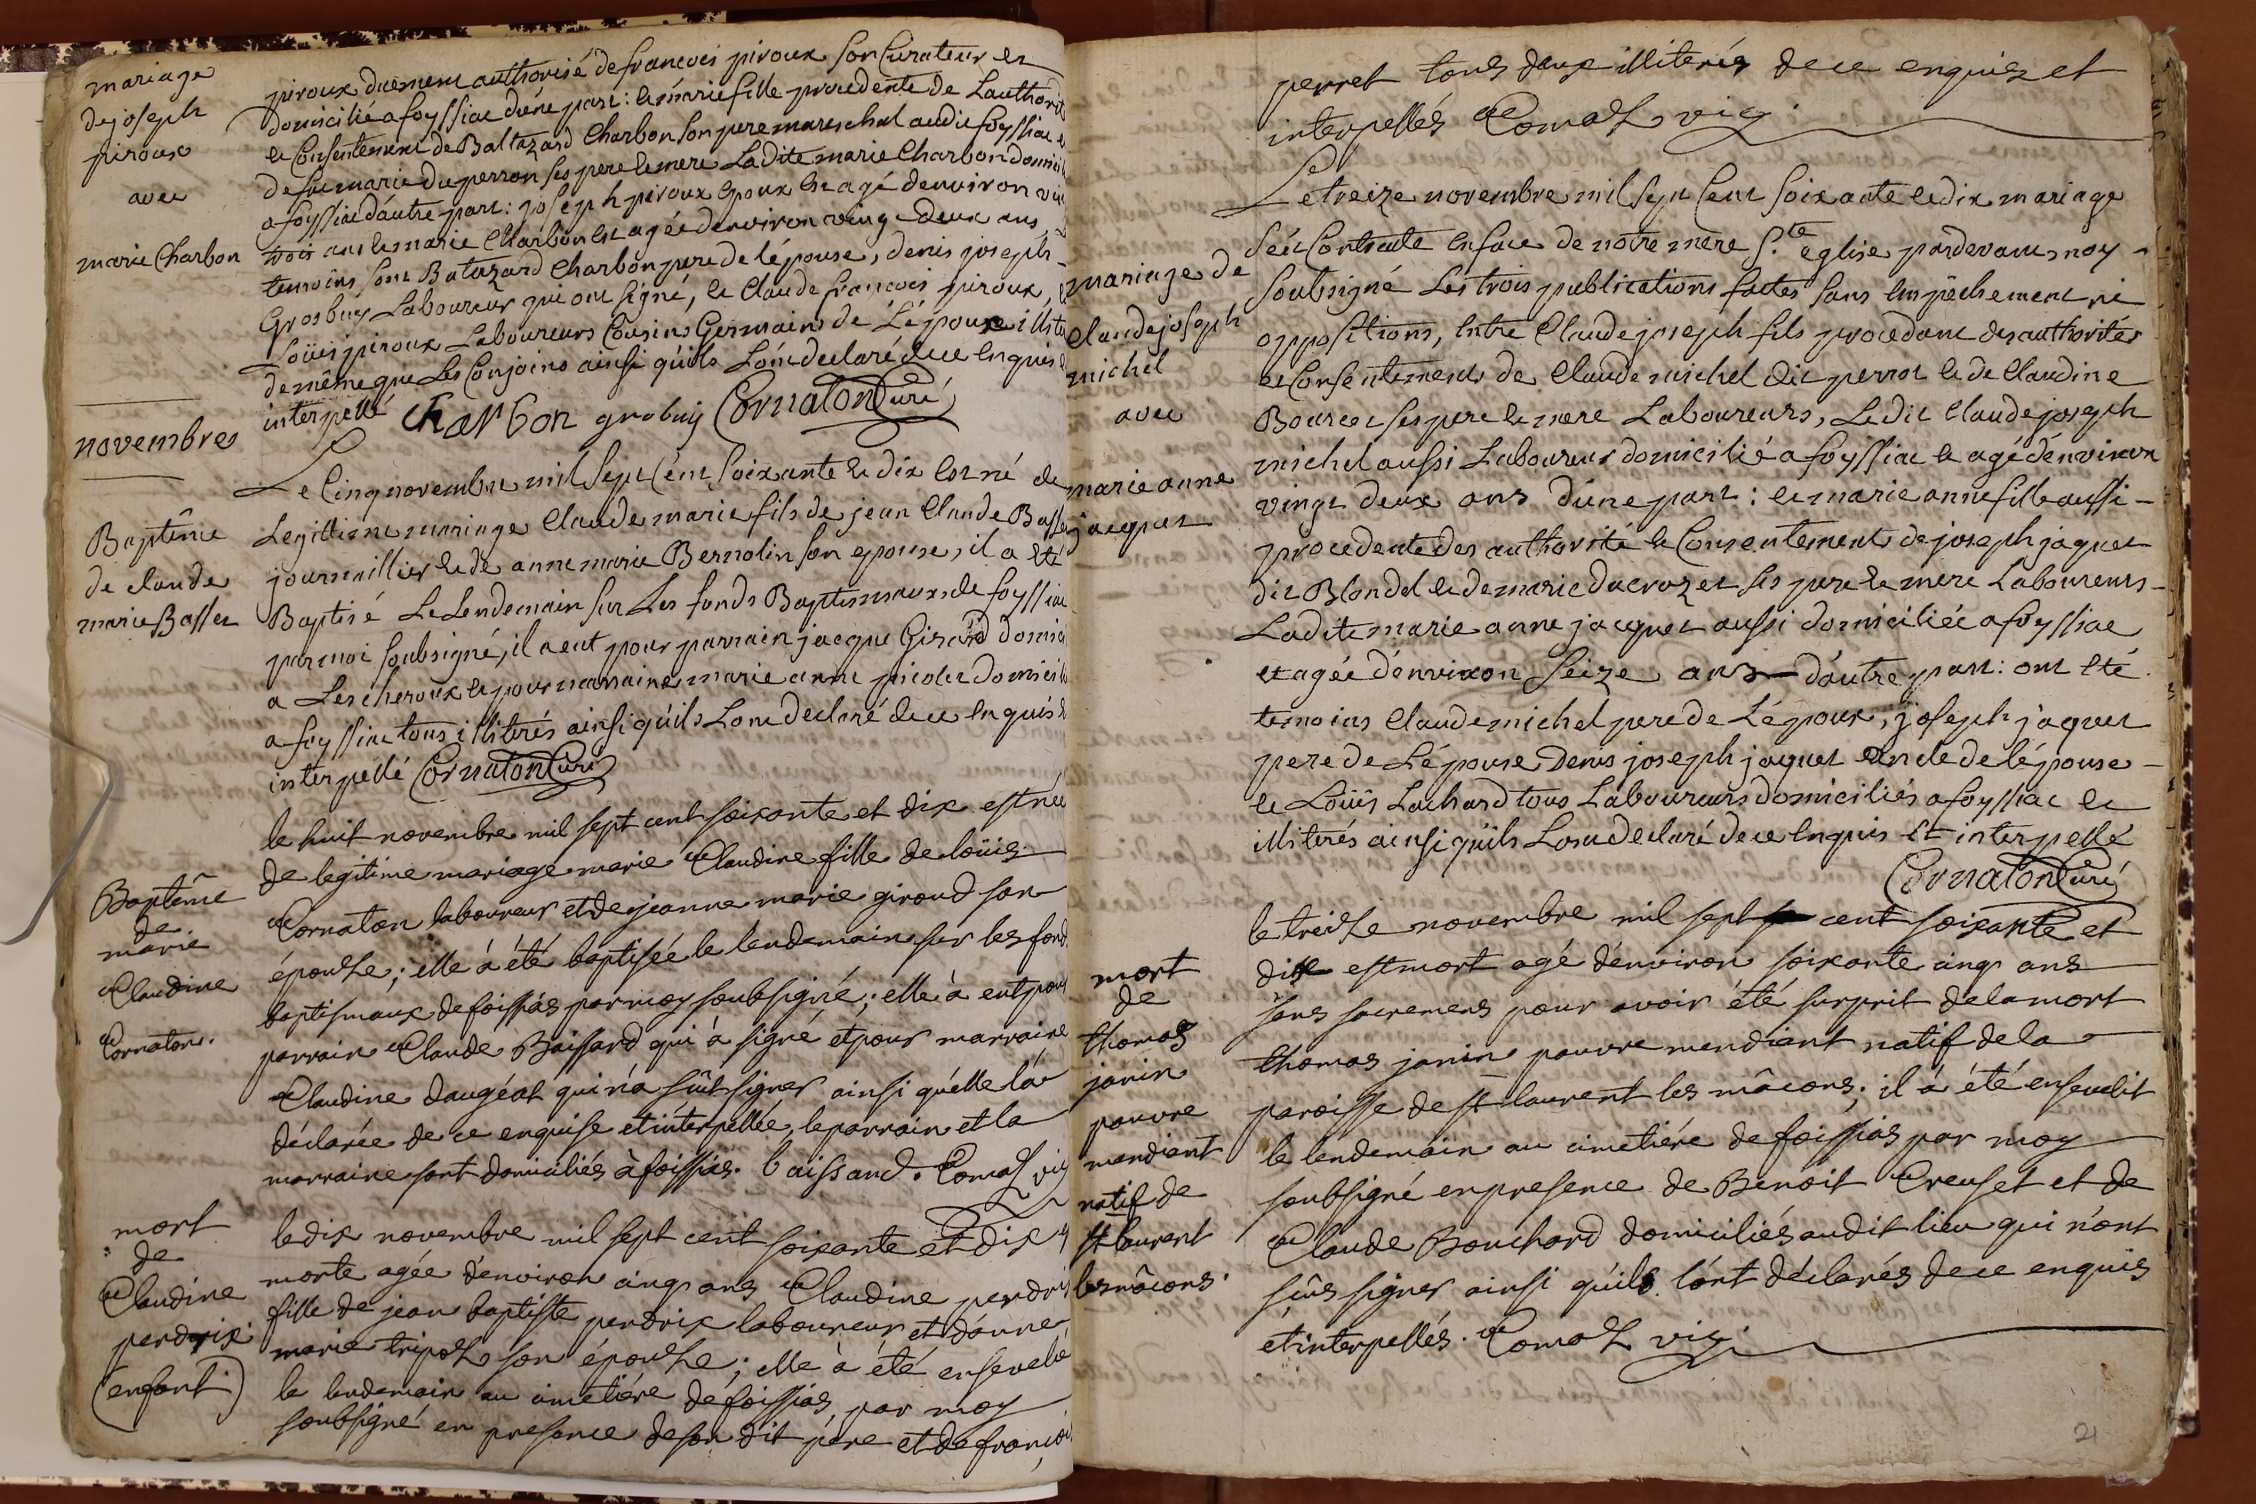 mariage
de joseph
piroux
avec
marie Charbon
piroux duement authorisé de francois piroux son Curateur et
domicilié a foyssiac d'une part: et marie fille procedente de Lauthorit
et Consentement de Baltazard Charbon son pere mareschal audit foyssiac et
de fue marie duperron ses pere et mere Ladite marie Charbon domicil
a foyssiac d'autre part: joseph piroux epoux est agé denviron vin
trois ans et marie Charbon est agée denviron vingt deux ans,
temoins sont Batazard Charbon pere de lépouse, denis joseph
Grosbuy Laboureur qui ont signé, et Claude francois piroux, et
Loüis piroux Laboureurs Cousins Germains de L'époux illite
de même que Les Conjoins ainsi qu'ils Lont declaré de ce Enquis et
interpellé Charbon grobuy Cornaton Curé
novembres
Baptême
de claude
marie Basset
Le Cinq novembre mil sept Cent soixante et dix est né de
Legittime mariage Claude marie fils de jean Claude Basset
journaillier et de anne marie Bernolin son epouse, il a été
Baptisé Le Lendemain sur Les fonds Baptismaux de foyssiac
par moi soubsigné, il a eut pour parrain jacque Girard domici
a Lescheroux et pour marraine marie anne picolet domicili
a foyssiac tous illiterés ainsi qu'ils Lont declaré de ce Enquis et
interpellé Cornaton Curé
Baptême
de
marie
Claudine
Cornaton.
le huit novembre mil sept cent soixante et dix est née
de legitime mariage marie Claudine fille de loüis
Cornaton laboureur et de jeanne marie giroud son
épouse; elle à été baptisée le lendemain sur les fond
baptismaux de foissias par moy soubsigné; elle à eut pour
parrain Claude Baissard qui à signé, et pour marraine
Claudine daugéat qui n'a sût signer ainsi qu'elle l'a
déclarée de ce enquise et interpellée, le parrain et la
marraine sont domiciliés à foissias. baissard. Comas vic
mort
de
Claudine
perdrix
(enfant)
le dix novembre mil sept cent soixante et dix est
morte agée d'environ cinq ans Claudine perdrix
fille de jean baptiste perdrix laboureur et d'anne
marie tripoz son épouse; elle à été ensevelie
le lendemain au cimetiére de foissias par moy
soubsigné en presence de son dit pére et de françoi
perret tous deux illiterés de ce enquis et
interpellés Comas vic.
mariage de
claude joseph
michel
avec
marie anne
jacquet
Le treize novembre mil sept Cent soixante et dix mariage
s'est Contracté en face de notre mere Ste eglise pardevant, moy
soubsigné Les trois publications faites sans Empêchement ni
oppositions, Entre Claude joseph fils procedant des authorités
et Consentements de Claude michel dit perrot et de Claudine
Bourcet ses pere et mere Laboureurs, Ledit Claude joseph
michel aussi Laboureur domicilié a foyssiac et agé d'environ
vingt deux ans d'une part: et marie anne fille aussi
procedente des authorité et Consentements de joseph jaquet
dit Blondel et de marie ducrozet ses pere et mere Laboureurs
Ladite marie anne jacquet aussi domiciliée a foyssiac
et agée d'environ seize ans d'autre part: ont été
temoins Claude michel pere de L'époux, joseph jaquet
pere de L'épouse Denis joseph jaquet oncle de lépouse
et Loüis Lachard tous Laboureurs domiciliés a foyssiac et
illiterés ainsi qu'ils Lont declaré de ce Enquis et interpellé
Cornaton Curé
mort
de
thomas
janin
pauvre
mendiant
natif de
st laurent
les mâcons.
le treise novembre mil sept cent soixante et
dix est mort agé d'environ soixante cinq ans
sans sacremens pour avoir été surprit de la mort
thomas janin pauvre mendiant natif de la
paroisse de st laurent les mâcons; il à été ensevelit
le lendemain au cimetiére de foissias par moy
soubsigné en presence de Benoit Creuset et de
Claude Bouchard domiciliés audit lieu qui n'ont
sûs signer ainsi qu'ils l'ont déclarés de ce enquis
et interpellés. Comas vic.
21